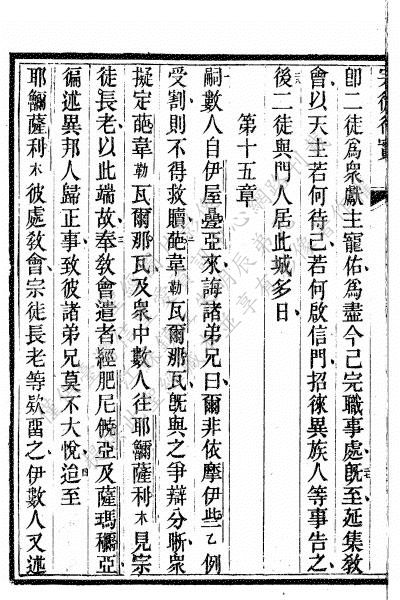 宗徒行實
卽二徒爲衆獻主寵佑爲盡今已完職事處二七旣至延集敎
會以天主若何待己若何啟信門招徠異族人等事告之二八
後二徒與門人居此城多日
第十五章
一嗣數人自伊屋疊亞來誨諸弟兄曰爾非依摩伊些乙例
受割則不得救贖二葩韋勒瓦爾那瓦旣與之爭辯分晰衆
擬定葩韋勒瓦爾那瓦及衆中數人往耶穪薩利木見宗
徒長老以此端故三奉敎會遣者經肥尼僥亞及薩瑪穪亞
徧述異邦人歸正事致彼諸弟兄莫不大悅四迨至
耶穪薩利木彼處敎會宗徒長老等欵畱之伊數人又述